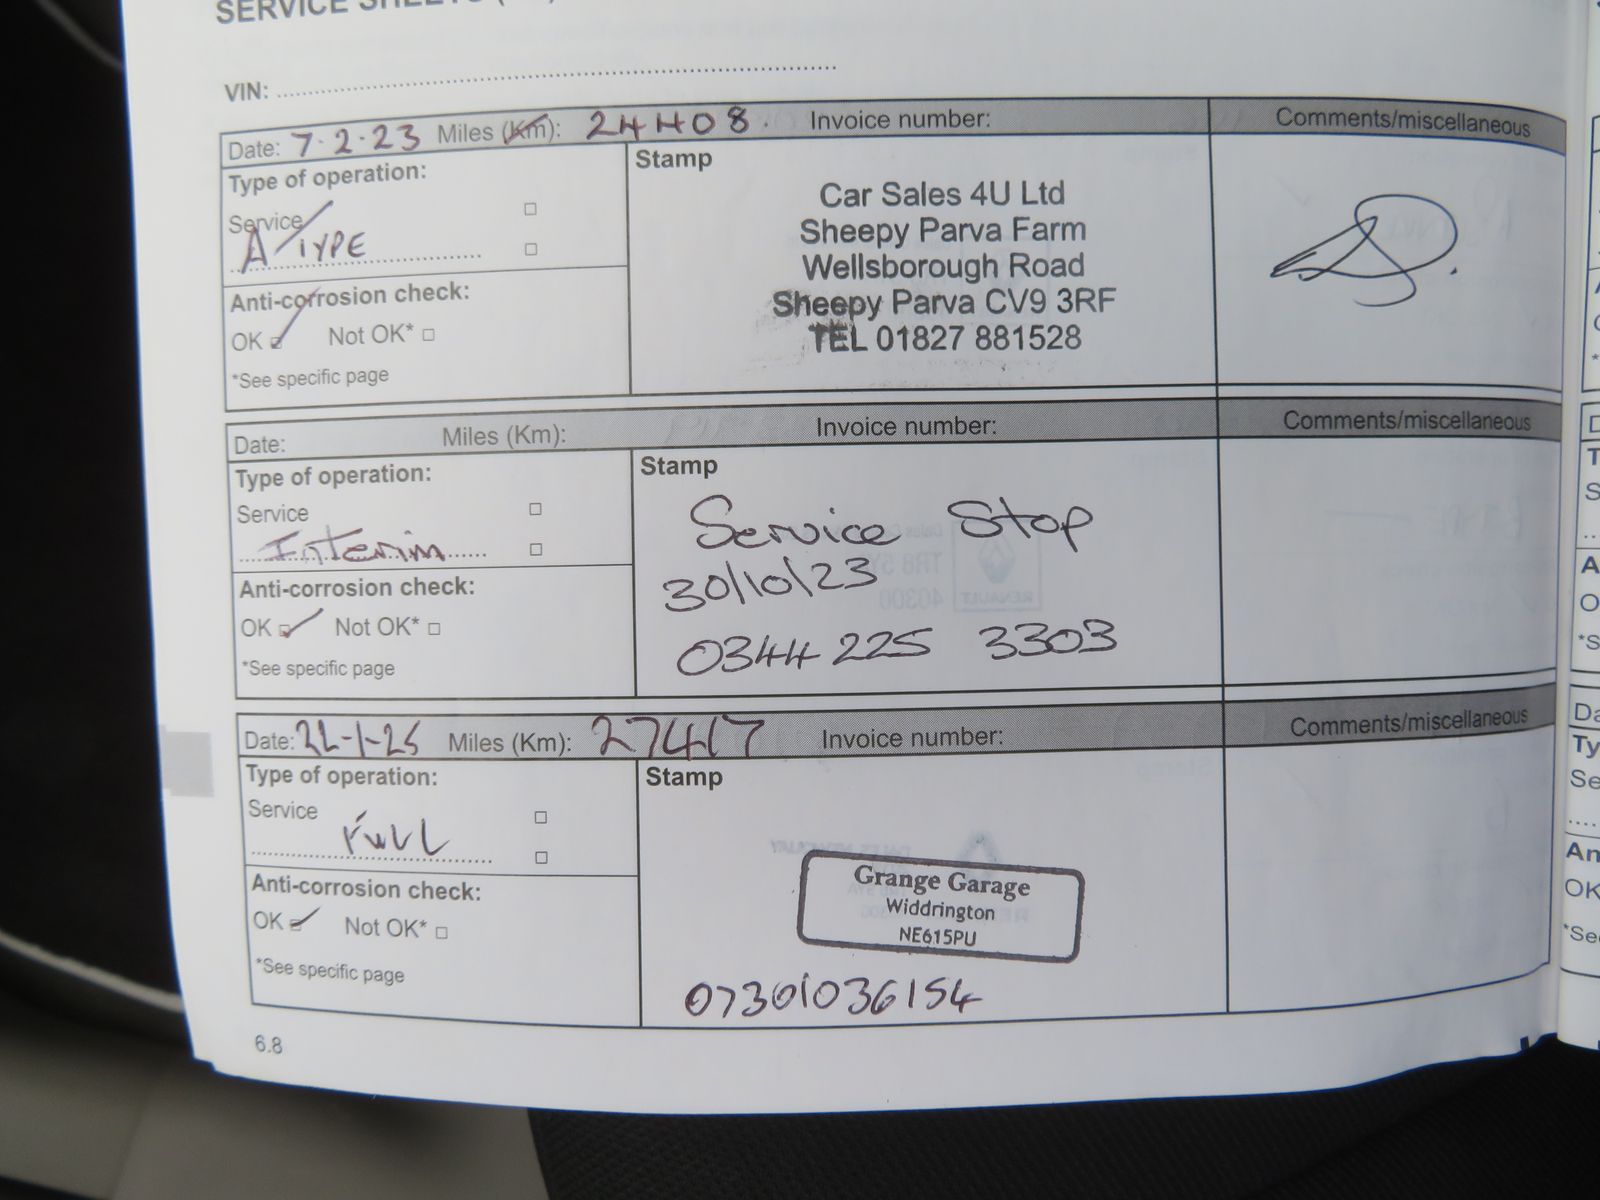 SERVICE SHEETS
VIN:
Date: 7.2.23 Miles (Km): 24408. Invoice number: Comments/miscellaneous
Type of operation:
Service
A/TYPE
Anti-corrosion check:
OK Not OK*
*See specific page
Stamp
Car Sales 4U Ltd
Sheepy Parva Farm
Wellsborough Road
Sheepy Parva CV9 3RF
TEL 01827 881528
Date: Miles (Km): Invoice number: Comments/miscellaneous
Type of operation:
Service
Interim
Anti-corrosion check:
OK Not OK*
*See specific page
Stamp
Service Stop
30/10/23
0344 225 3303
Date: 22-1-25 Miles (Km): 27417 Invoice number: Comments/miscellaneous
Type of operation:
Service
FULL
Anti-corrosion check:
OK Not OK*
*See specific page
Stamp
Grange Garage
Widdrington
NE615PU
07301036154
6.8